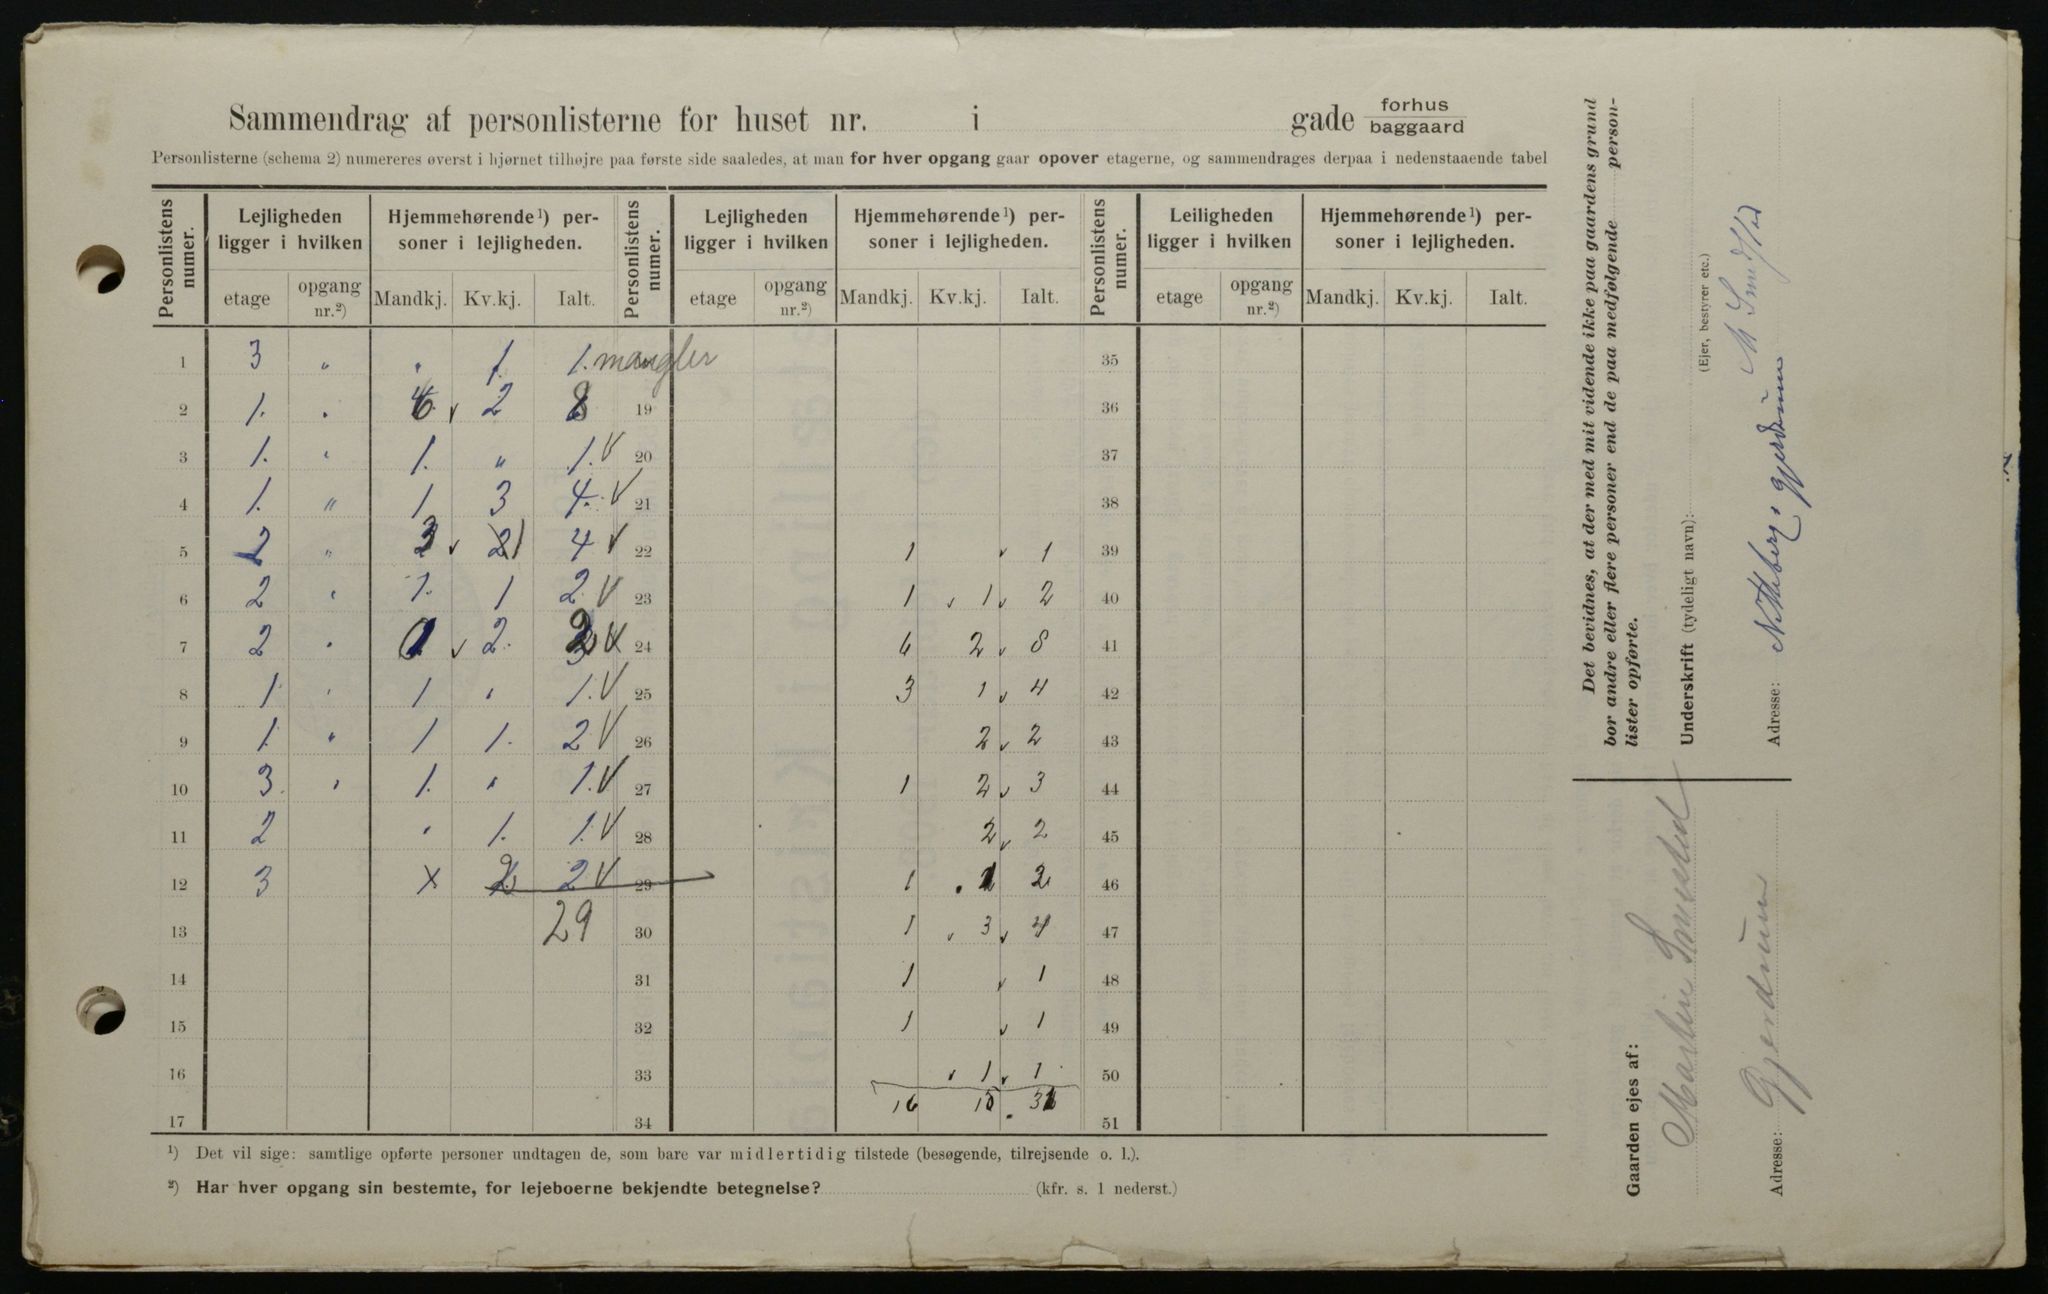 Sammendrag af personlisterne for huset nr. i gade forhus baggaard
Personlisterne (schema 2) numereres øverst i hjørnet tilhøjre paa første side saaledes, at man for hver opgang gaar opover etagerne, og sammendrages derpaa i nedenstaaende tabel
Personlistens numer. Lejligheden ligger i hvilken Hjemmehørende ¹) personer i lejligheden. Personlistens numer. Lejligheden ligger i hvilken Hjemmehørende ¹) personer i lejligheden. Personlistens numer. Leiligheden ligger i hvilken Hjemmehørende ¹) personer i lejligheden.
etage opgang nr.²) Mandkj. Kv.kj. Ialt. etage opgang nr.²) Mandkj. Kv.kj. Ialt. etage opgang nr.²) Mandkj. Kv.kj. Ialt.
1 3 „ „ 1. 1. mangler 35
2 1. „ 6 v 2 8 19 36
3 1. „ 1. „ 1. v 20 37
4 1. „ 1 3 4. v 21 38
5 2 „ 3 v 1 4 v 22 1 v 1 39
6 2 „ 1. 1 2 v 23 1 v 1 v 2 40
7 2 „ 0 v 2. 2 v 24 6 2 v 8 41
8 1 „ 1 „ 1. v 25 3 1 v 4 42
9 1. „ 1 1. 2 v 26 2 v 2 43
10 3 „ 1. „ 1. v 27 1 2 v 3 44
11 2 „ 1. 1. v 28 2 v 2 45
12 3 x 2 2 v 29 1 . 1 2 46
13 29 30 1 v 3 v 4 47
14 31 1 v 1 48
15 32 1 v 1 49
16 33 v 1 v 1 50
17 34 16 15 . 31 51
¹) Det vil sige: samtlige opførte personer undtagen de, som bare var midlertidig tilstede (besøgende, tilrejsende o. l.).
²) Har hver opgang sin bestemte, for lejeboerne bekjendte betegnelse? (kfr. s. 1 nederst.)
Det bevidnes, at der med mit vidende ikke paa gaardens grund
bor andre eller flere personer end de paa medfølgende person-
lister opførte.
Underskrift (tydeligt navn):
(Ejer, bestyrer etc.)
Adresse:
Gjerdrum
Gaarden ejes af:
Martin Smestad
Adresse: Gjerdrum